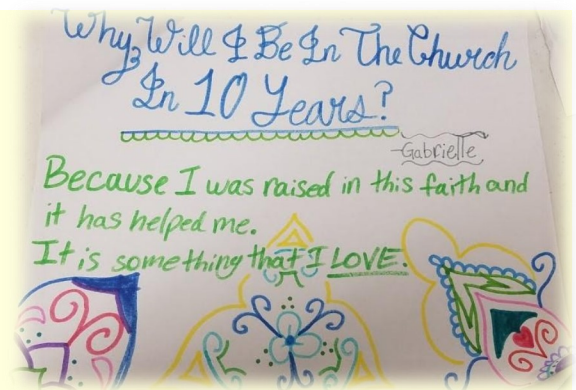 Why Will I Be In The Church
In 10 Years?
-Gabrielle
Because I was raised in this faith and
it has helped me.
It is something that I LOVE.